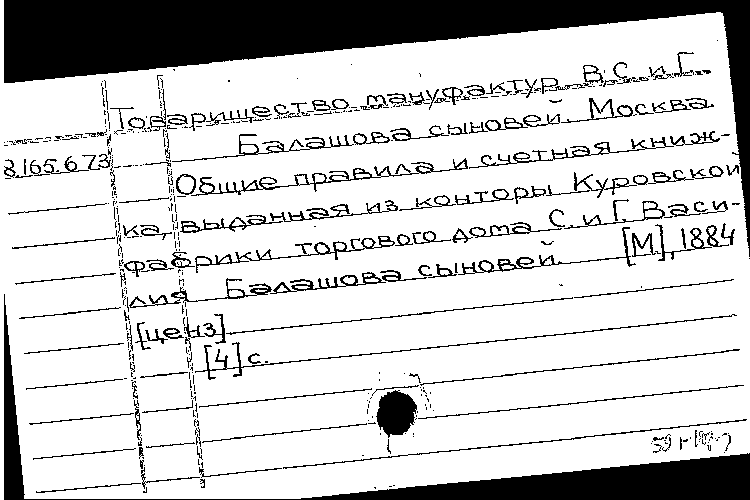 Товарищество мануфактур В, С. и Г.
Балашова сыновей. Москва.
8.165.673
Общие правила и счетная книж-
ка, выданная из конторы Куровской
фабрики торгового дома С. и Г. Васи-
лия Балашова сыновей. [М.], 1884
[ценз].
[4] с.